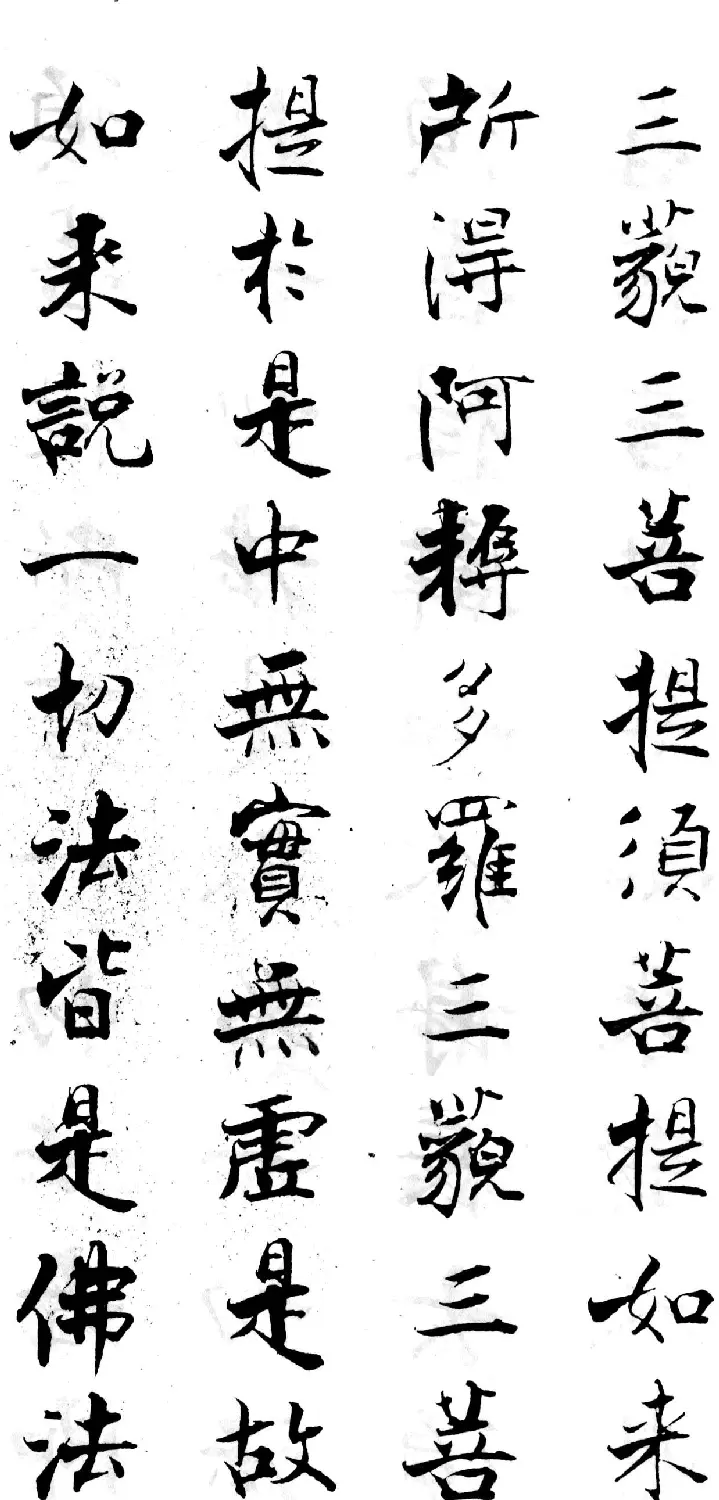 三藐三菩提須菩提如来
所得阿耨多羅三藐三菩
提於是中無實無虛是故
如来說一切法皆是佛法